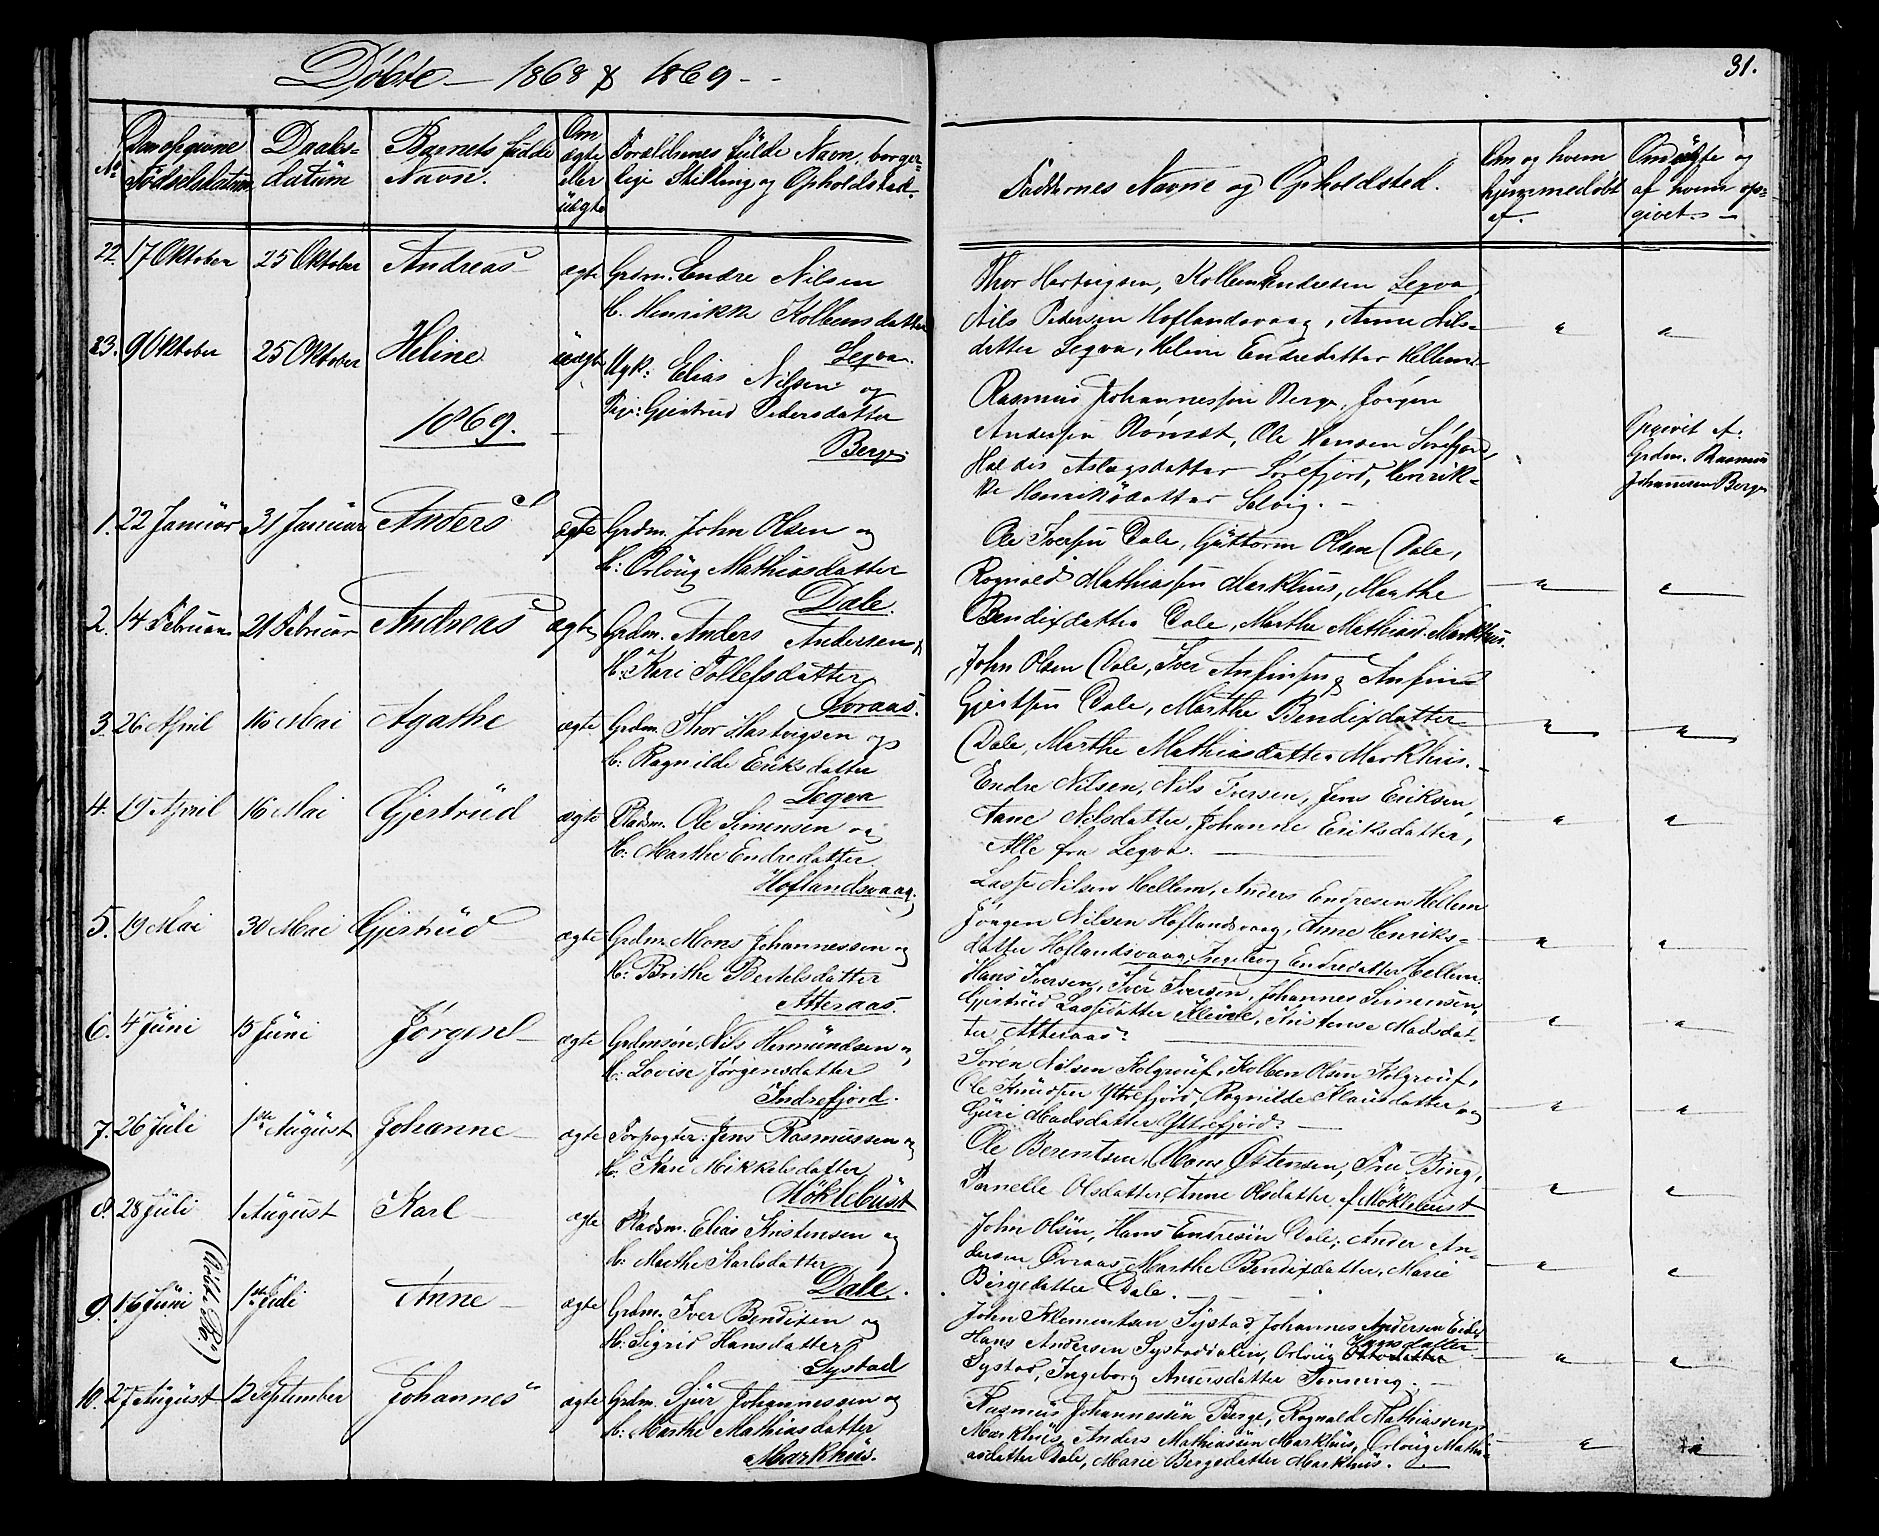 Döbte 1868 & 1869
31.
No
Den opgivne Födselsdatum
Daabs-datum
Barnets fulde Navn.
Om ægte eller uægte
Forældrenes fulde Navn, borger-lige Stilling og Opholdsted.
Faddernes Navne og Opholdsted.
Om og hvem hjemmedöbt af.
Om uægte og af hvem op-givet.
22. 17 Oktober 25 Oktober Andreas ægte Grdm. Endre Nilsen
H. Henrikke Kolbensdatter
Legva.
Thor Hartvigsen, Kolben Endresen Legva,
Nils Pedersen Hoflandsvaag, Anne Nils-
datter Legva, Heline Endredatter Hellem
23. 9 Oktober 25 Oktober Heline uægte Ugk: Elias Nilsen og
Pige: Gjertrud Pedersdatter
Berge
Rasmus Johannessen Berge, Jörgen
Andersen Rönset, Ole Hansen Sörefjord,
Haldis Aslagsdatter Sörefjord, Henrik-
ke Henriksdatter Selvig.
Opgivet af
Grdm. Rasmus
Johannesen Berge
1869.
1. 22 Januar 31 Januar Anders ægte Grdm. John Olsen og
H: Orloug Mathiasdatter
Dale.
Ole Iversen Dale, Guttorm Olsen Dale,
Rognald Mathiassen Markhus, Marthe
Bendixdatter Dale, Marthe Mathiasd. Markhus.
2. 14 Februar 21 Februar Andreas ægte Grdm. Anders Andersen &
H: Kari Tollefsdatter
Övraas.
John Olsen Dale, Iver Anfinsen & Anfin
Gjertsen Dale, Marthe Bendixdatter
Dale, Marthe Mathiasdatter Markhus.
3. 26 April 16 Mai Agathe ægte Grdm. Thor Hartvigsen og
H: Ragnilde Eriksdatter
Legva
Endre Nilsen, Nils Iversen, Jens Eriksen,
Anne Nilsdatter, Johanne Eriksdatter,
Alle fra Legva.
4. 19 April 16 Mai Gjertrud ægte Pladsm. Ole Simensen og
H: Marthe Endredatter
Hoflandsvaag.
Lasse Nilsen Hellem, Anders Endresen Hellem
Jörgen Nilsen Hoflandsvaag, Anne Henriks-
datter Hoflandsvaag, Ingeborg Endredatter Hellem.
5. 19 Mai 30 Mai Gjertrud ægte Grdm. Mons Johannessen og
H: Brithe Bertelsdatter
Atteraas.
Hans Iversen, Iver Iversen, Johannes Simensen,
Gjertrud Lassedatter Kleive, Kristense Madsdat-
ter Atteraas.
6. 4 Juni 15 Juni Jörgen ægte Grdmsön. Nils Hermundsen og
H: Lovise Jörgensdatter
Indrefjord.
Sören Nilsen Kolgrouf, Kolben Olsen Kolgrouf,
Ole Knudsen Yttrefjord, Ragnilde Klausdatter og
Guri Madsdatter Yttrefjord.
7. 26 Juli 1ste August Johanne ægte Forpagter: Jens Rasmussen og
H: Kari Mikkelsdatter
Möklebust
Ole Berentsen, Mons Östensen, Fru Bing,
Pernelle Olsdatter, Anne Olsdatter af Möklebust
8. 28 Juli 1 August Karl ægte Pladsm. Elias Kristensen og
H: Marthe Karlsdatter
Dale.
John Olsen, Hans Endresen Dale, Ander An-
dersen Övraas, Marthe Bendixdatter, Marie
Birgedatter Dale.
9. 16 Juni 1ste Juli Anne ægte Grdm. Iver Bendixen og
H: Sigrid Hansdatter
Systad
John Klementsen Systad, Johannes Andersen Eide
Hans Andersen Systaddalen, Orloug Hansdatter
Systad, Ingeborg Andersdatter Tenning.
10. 27 August 12 September Johannes ægte Grdm. Sjur Johannessen og
H: Marthe Mathiasdatter
Markhus.
Rasmus Johannessen Berge, Rognald Mathiassen
Markhus, Anders Mathiassen Markhus, Orloug Mathi-
asdatter Dale, Marie Bergedatter Markhus.